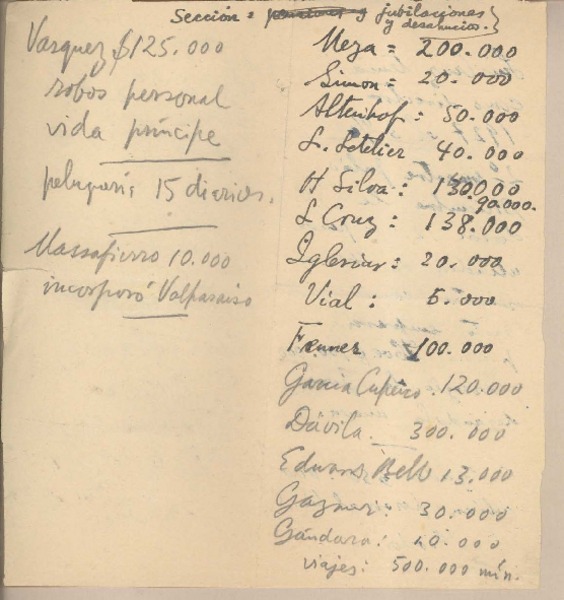 Sección: pensiones y jubilaciones
y desahucios.
Vasquez $125.000
robos personal
vida príncipe
peluquería 15 diarios.
Massafierro 10.000
incorporó Valparaiso
Meza = 200.000
Simon = 20.000
Altenhof: 50.000
L. Letelier 40.000
H Silva: 130.000
90.000.
L Cruz: 138.000
Iglesias: 20.000
Vial: 5.000
Fenner 100.000
Garcia 120.000
Dávila. 300.000
Edwards Bello 13.000
30.000
Gándara: 40.000
viajes: 500.000 mín.